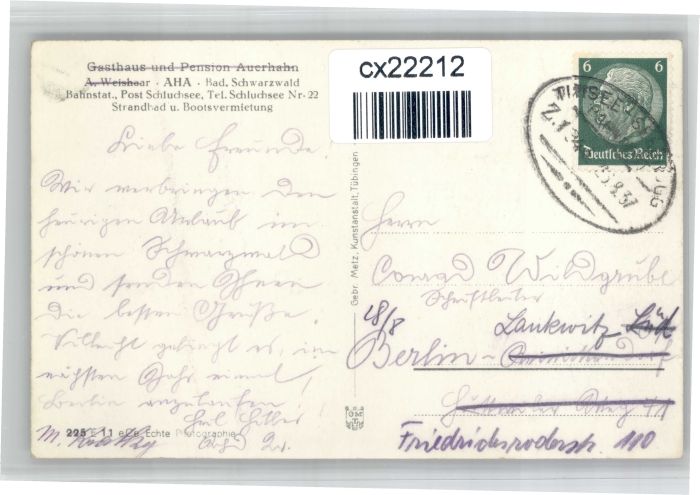 Gasthaus und Pension Auerhahn
A. Weishaar · AHA · Bad. Schwarzwald
Bahnstat., Post Schluchsee, Tel. Schluchsee Nr. 22
Strandbad u. Bootsvermietung
cx22212
6 6
Deutsches Reich
TITISEE
Z.
Liebe Freunde.
Wir verbringen den
heurigen Urlaub im
schönen Schwarzwald
und senden Ihnen
die besten Grüße.
Vielleicht gelingt es, im
nächsten Jahr einmal
Berlin anzulaufen
Heil Hitler
225 11 Echte Photographie
Gebr. Metz, Kunstanstalt, Tübingen
Herrn
Conrad Wildgrube
Schriftleiter
18/8 Lankwitz
Berlin-
Friedrichsroderstr. 110